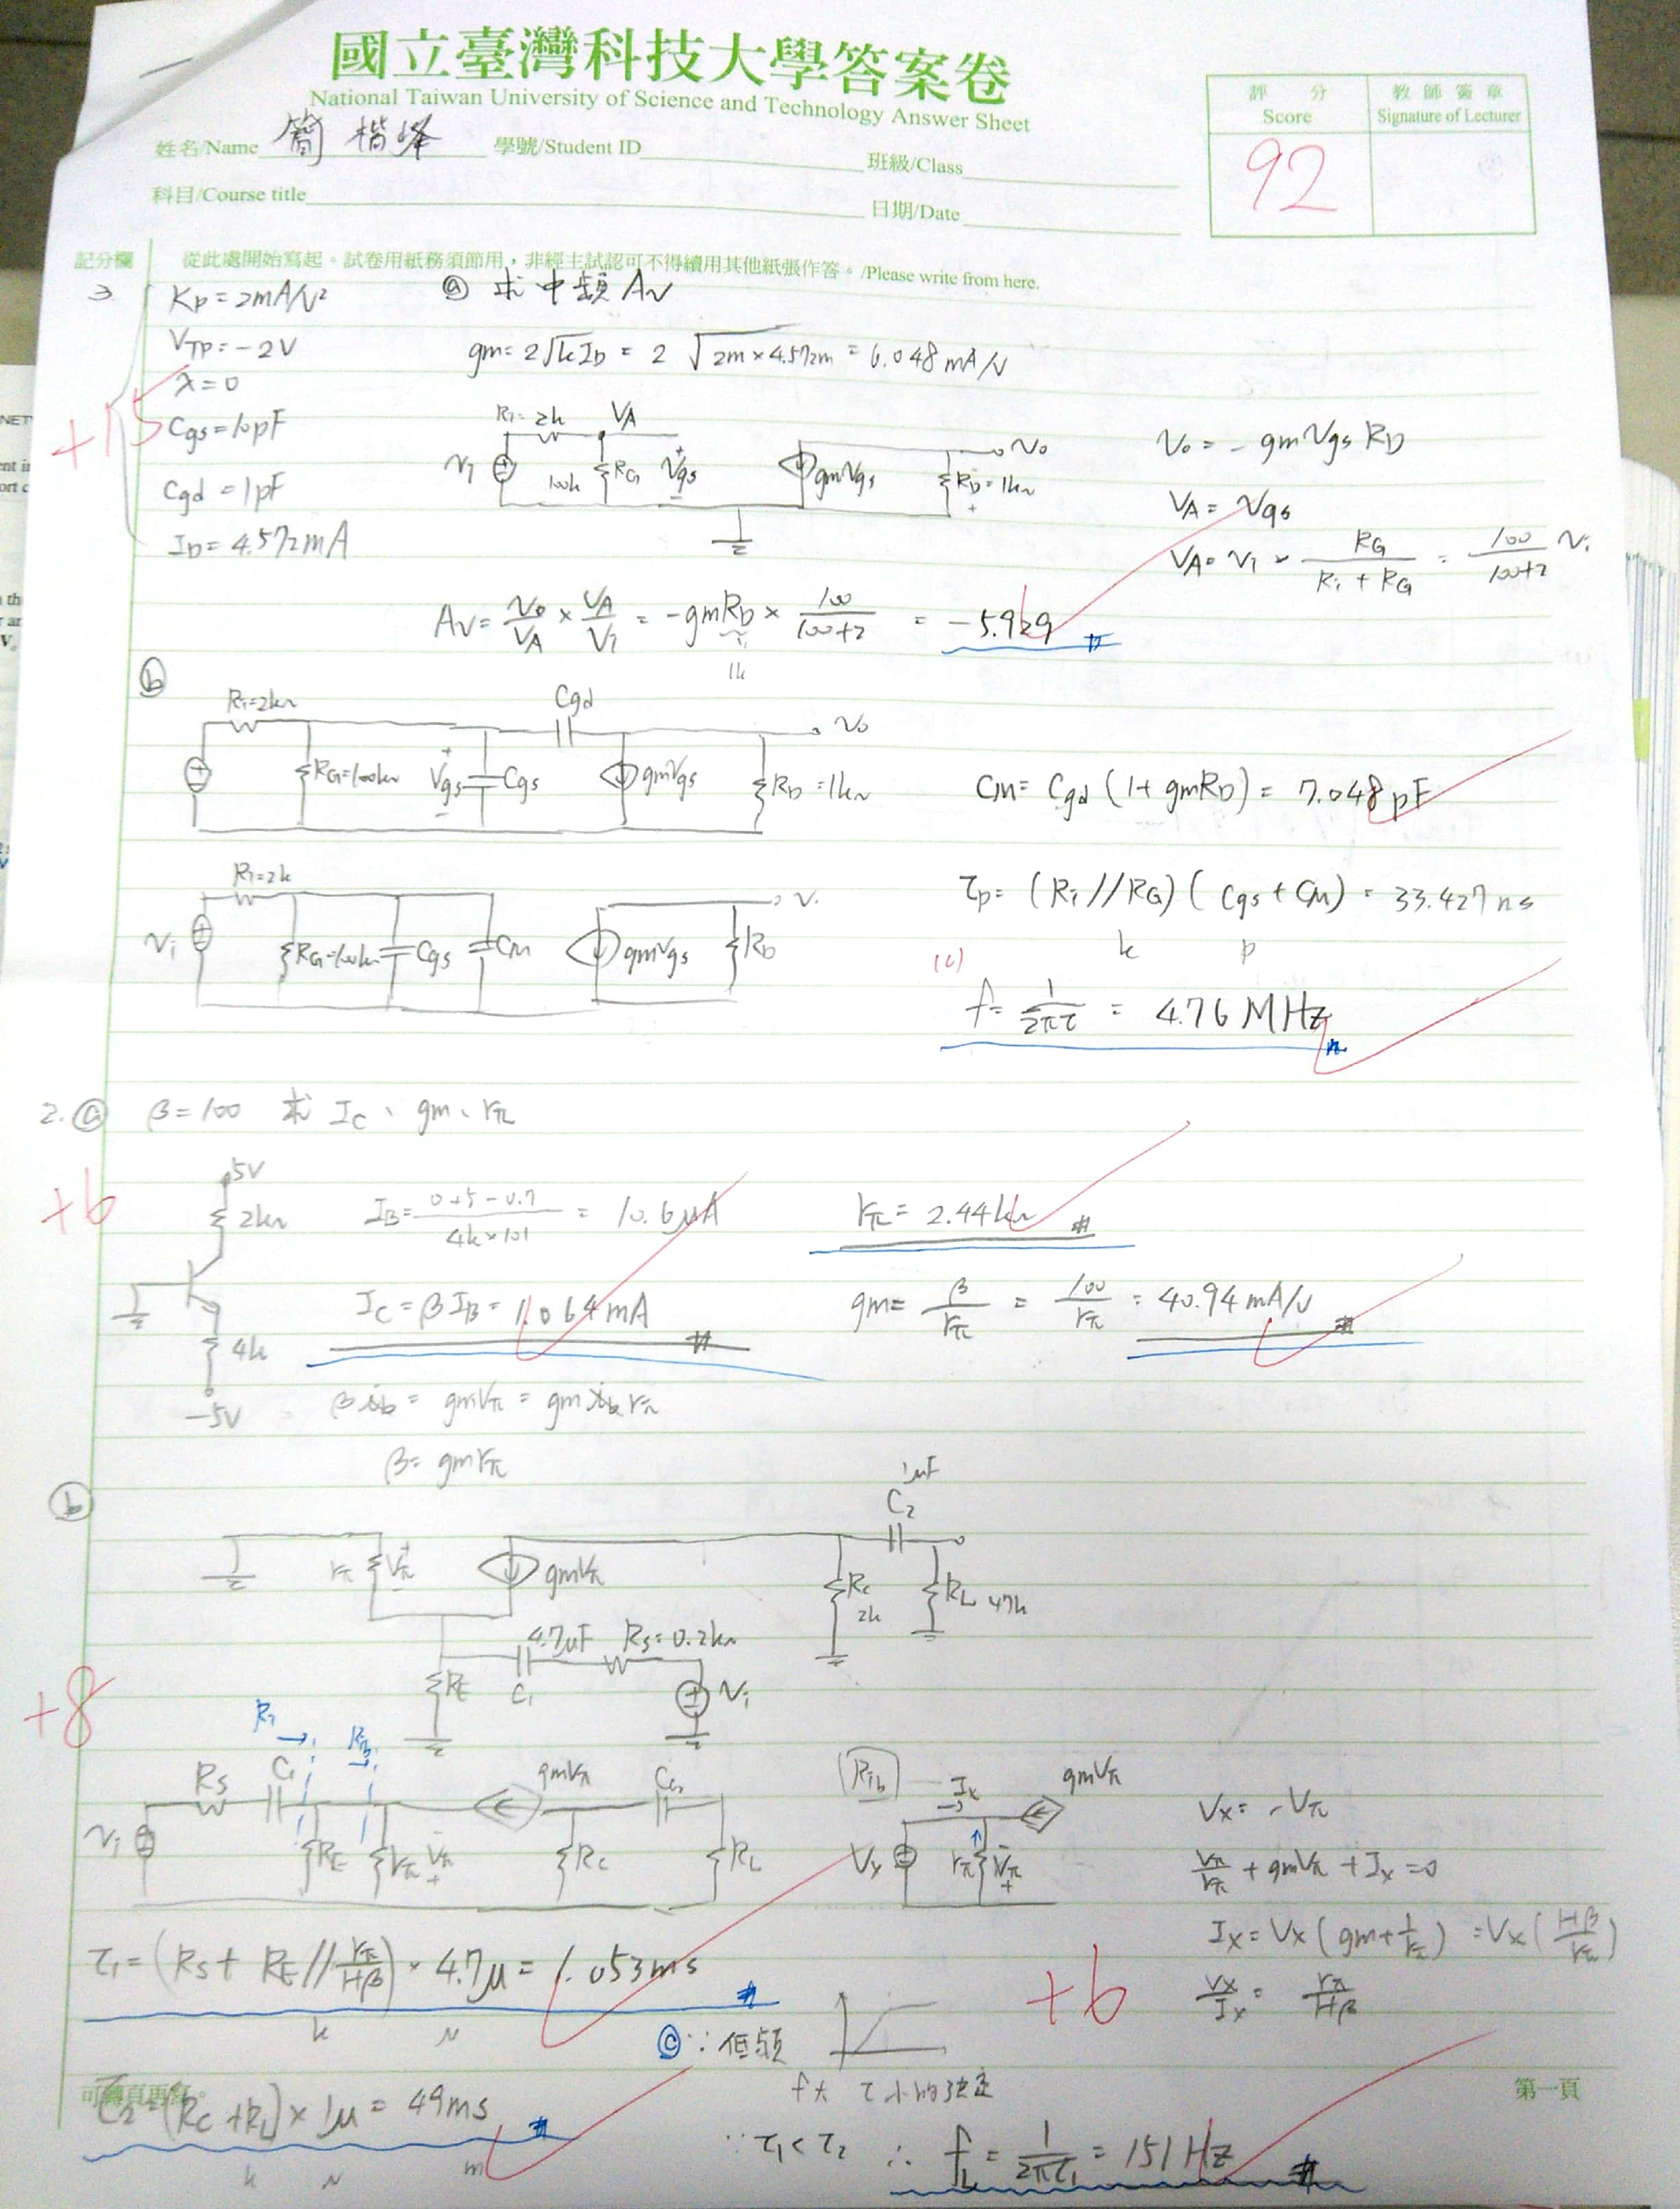 國立臺灣科技大學答案卷
National Taiwan University of Science and Technology Answer Sheet
姓名/Name 簡楷峰 學號/Student ID 班級/Class
科目/Course title 日期/Date
評分 Score 教師簽章 Signature of Lecturer
92
記分欄 從此處開始寫起。試卷用紙務須節用,非經主試認可不得續用其他紙張作答。/Please write from here.
3 Kp = 2mA/V² ⓐ 求中頻 Av
VTP = -2V gm = 2√kID = 2 √2m×4.572m = 6.048 mA/V
λ = 0
+15
Cgs = 10pF
Cgd = 1pF
ID = 4.572mA
Ri = 2k VA
vi 100k RG Vgs gmVgs RD = 1kΩ vo
vo = -gmVgs RD
VA = Vgs
VA = vi × RG/(Ri + RG) = 100/(100+2) vi
Av = vo/VA × VA/vi = -gmRD × 100/(100+2) = -5.929
1k
ⓑ
Ri = 2kΩ Cgd vo
RG = 100kΩ Vgs Cgs gmVgs RD = 1kΩ
CM = Cgd (1 + gmRD) = 7.048 pF
Ri = 2k
vi RG = 100kΩ Cgs CM gmVgs RD
τp = (Ri // RG) ( Cgs + CM) = 33.427 ns
k p
(c)
f = 1/2πτ = 4.76 MHz
2. ⓐ β = 100 求 IC、gm、rπ
+6
5V
2kΩ
IB = (0+5-0.7)/(4k×101) = 10.6μA
rπ = 2.44kΩ
IC = βIB = 1.064mA
gm = β/rπ = 100/rπ = 40.94 mA/V
4k
-5V
βib = gmVπ = gm ib rπ
β = gmrπ
ⓑ
1μF
C2
rπ Vπ gmVπ RC 2k RL 47k
4.7μF RS = 0.2kΩ
RE C1 vi
+8
RS C1 gmVπ
vi RE rπ Vπ RC RL
Rib Ix gmVπ
Vx rπ Vπ
Vx = -Vπ
Vπ/rπ + gmVπ + Ix = 0
Ix = Vx (gm + 1/rπ) = Vx ((1+β)/rπ)
Vx/Ix = rπ/(1+β)
+6
τ1 = (RS + RE // rπ/(1+β)) × 4.7μ = 1.053ms
k μ
ⓒ ∵ 低頻
可轉頁再寫。
τ2 = (RC + RL) × 1μ = 49ms
k μ m
∵ τ1 < τ2 ∴ fL = 1/2πτ1 = 151 Hz
第一頁